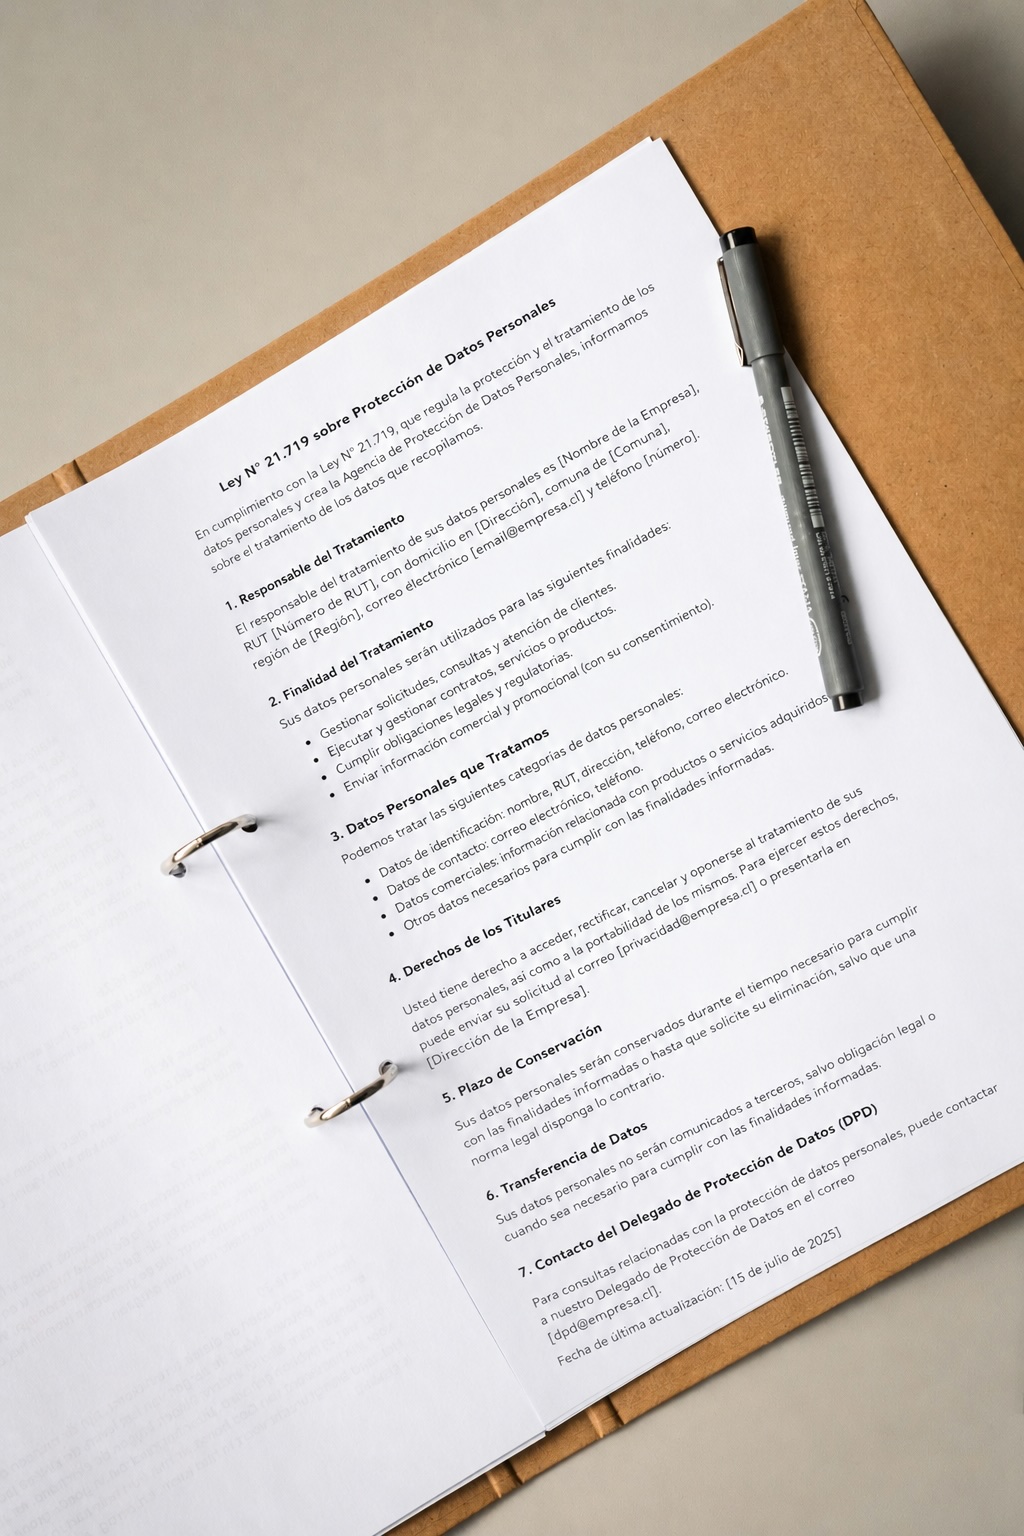 Ley N° 21.719 sobre Protección de Datos Personales
En cumplimiento con la Ley N° 21.719, que regula la protección y el tratamiento de los
datos personales y crea la Agencia de Protección de Datos Personales, informamos
sobre el tratamiento de los datos que recopilamos.
1. Responsable del Tratamiento
El responsable del tratamiento de sus datos personales es [Nombre de la Empresa],
RUT [Número de RUT], con domicilio en [Dirección], comuna de [Comuna],
región de [Región], correo electrónico [email@empresa.cl] y teléfono [número].
2. Finalidad del Tratamiento
Sus datos personales serán utilizados para las siguientes finalidades:
• Gestionar solicitudes, consultas y atención de clientes.
• Ejecutar y gestionar contratos, servicios o productos.
• Cumplir obligaciones legales y regulatorias.
• Enviar información comercial y promocional (con su consentimiento).
3. Datos Personales que Tratamos
Podemos tratar las siguientes categorías de datos personales:
• Datos de identificación: nombre, RUT, dirección, teléfono, correo electrónico.
• Datos de contacto: correo electrónico, teléfono.
• Datos comerciales: información relacionada con productos o servicios adquiridos
• Otros datos necesarios para cumplir con las finalidades informadas.
4. Derechos de los Titulares
Usted tiene derecho a acceder, rectificar, cancelar y oponerse al tratamiento de sus
datos personales, así como a la portabilidad de los mismos. Para ejercer estos derechos,
puede enviar su solicitud al correo [privacidad@empresa.cl] o presentarla en
[Dirección de la Empresa].
5. Plazo de Conservación
Sus datos personales serán conservados durante el tiempo necesario para cumplir
con las finalidades informadas o hasta que solicite su eliminación, salvo que una
norma legal disponga lo contrario.
6. Transferencia de Datos
Sus datos personales no serán comunicados a terceros, salvo obligación legal o
cuando sea necesario para cumplir con las finalidades informadas.
7. Contacto del Delegado de Protección de Datos (DPD)
Para consultas relacionadas con la protección de datos personales, puede contactar
a nuestro Delegado de Protección de Datos en el correo
[dpd@empresa.cl].
Fecha de última actualización: [15 de julio de 2025]